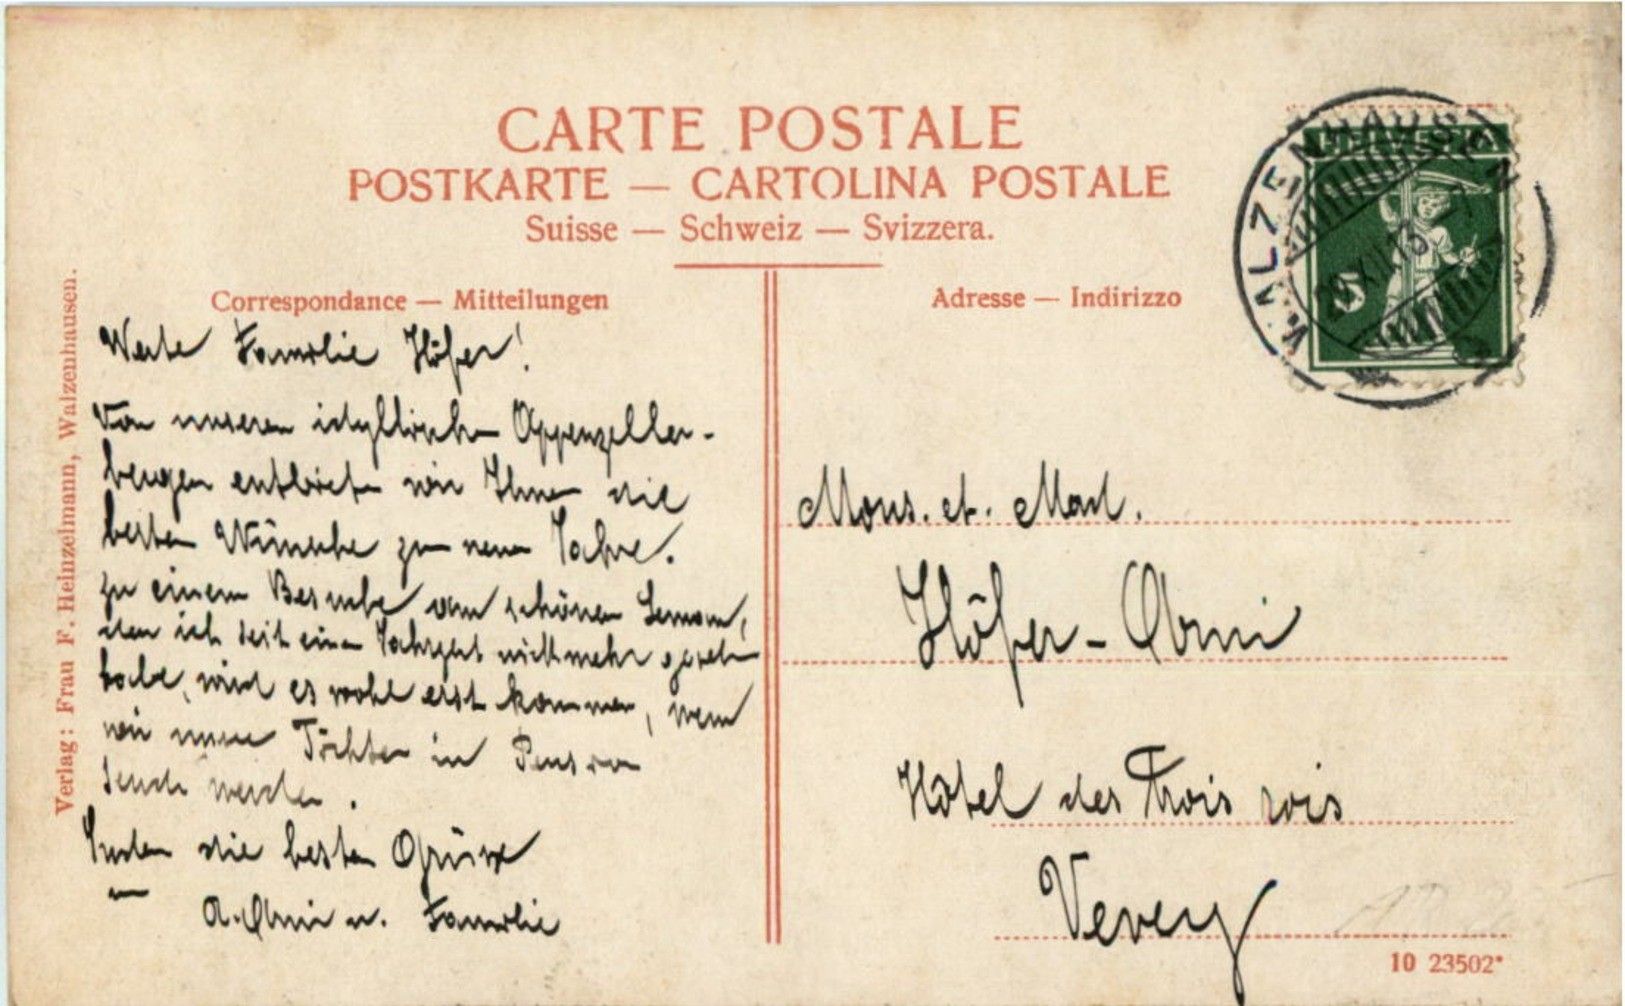 CARTE POSTALE
POSTKARTE — CARTOLINA POSTALE
Suisse — Schweiz — Svizzera.
Correspondance — Mitteilungen
Adresse — Indirizzo
Verlag: Frau F. Heinzelmann, Walzenhausen.
WALZENHAUSEN
HELVETIA
5
Werte Familie Höfer!
Von unseren idyllischen Appenzeller-
bergen entbieten wir Ihnen die
besten Wünsche zum neuen Jahre.
Zu einem Besuche am schönen Leman,
den ich seit einem nicht mehr gesehen
habe, wird es wohl erst kommen, wenn
wir unsere Töchter in Pension
senden werden.
die besten Grüsse
A. u. Familie
Mons. et. Mad.
Höfer-
Hôtel des Trois rois
Vevey
10 23502*